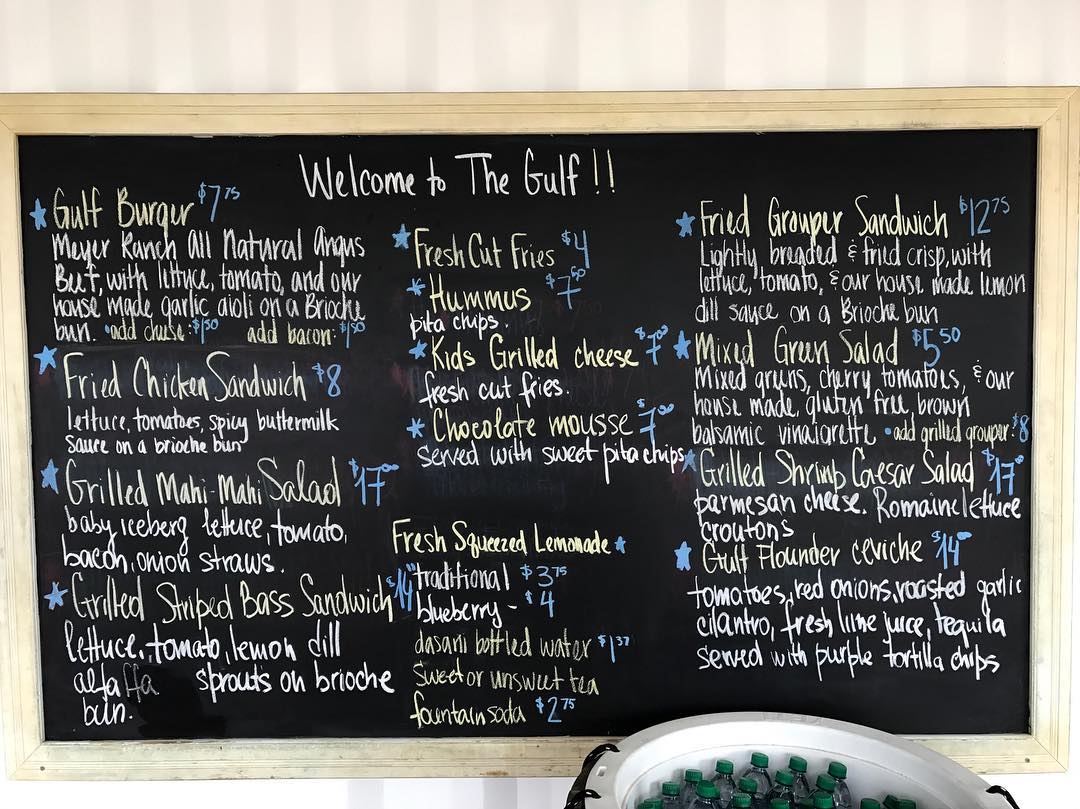 Welcome to The Gulf!!
Gulf Burger $7.75
Meyer Ranch All Natural Angus
Beef, with lettuce, tomato, and our
house made garlic aioli on a Brioche
bun. •add cheese: $1.50 add bacon: $1.50
Fried Chicken Sandwich $8
lettuce, tomatoes, spicy buttermilk
sauce on a brioche bun
Grilled Mahi-Mahi Salad $17.00
baby iceberg lettuce, tomato,
bacon, onion straws.
Grilled Striped Bass Sandwich $14.00
lettuce, tomato, lemon dill
alfalfa sprouts on brioche
bun.
Fresh Cut Fries $4
Hummus $7.50
pita chips.
Kids Grilled cheese $7.00
fresh cut fries.
Chocolate mousse $7.00
served with sweet pita chips
Fresh Squeezed Lemonade
traditional $3.75
blueberry - $4
dasani bottled water $1.37
Sweet or unsweet tea
fountain soda $2.75
Fried Grouper Sandwich $12.75
Lightly breaded & fried crisp, with
lettuce, tomato, & our house made lemon
dill sauce on a Brioche bun
Mixed Green Salad $5.50
Mixed greens, cherry tomatoes, & our
house made, gluten free, brown
balsamic vinaigrette •add grilled grouper: $8
Grilled Shrimp Caesar Salad $17.00
parmesan cheese. Romaine lettuce
croutons
Gulf Flounder ceviche $14.00
tomatoes, red onions, roasted garlic
cilantro, fresh lime juice, tequila
served with purple tortilla chips